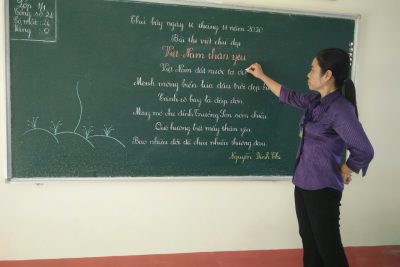 Lớp 1/1
Tổng số: 26
Có mặt: 26
Vắng: 0
Thứ bảy ngày 16 tháng 11 năm 2020
Bài thi viết chữ đẹp
Việt Nam thân yêu
Việt Nam đất nước ta ơi
Mênh mông biển lúa đâu trời đẹp
Cánh cò bay lả dập dờn
Mây mờ che đỉnh Trường Sơn sớm chiều
Quê hương biết mấy thân yêu
Bao nhiêu đời đã chịu nhiều thương đau
Nguyễn Đình Thi